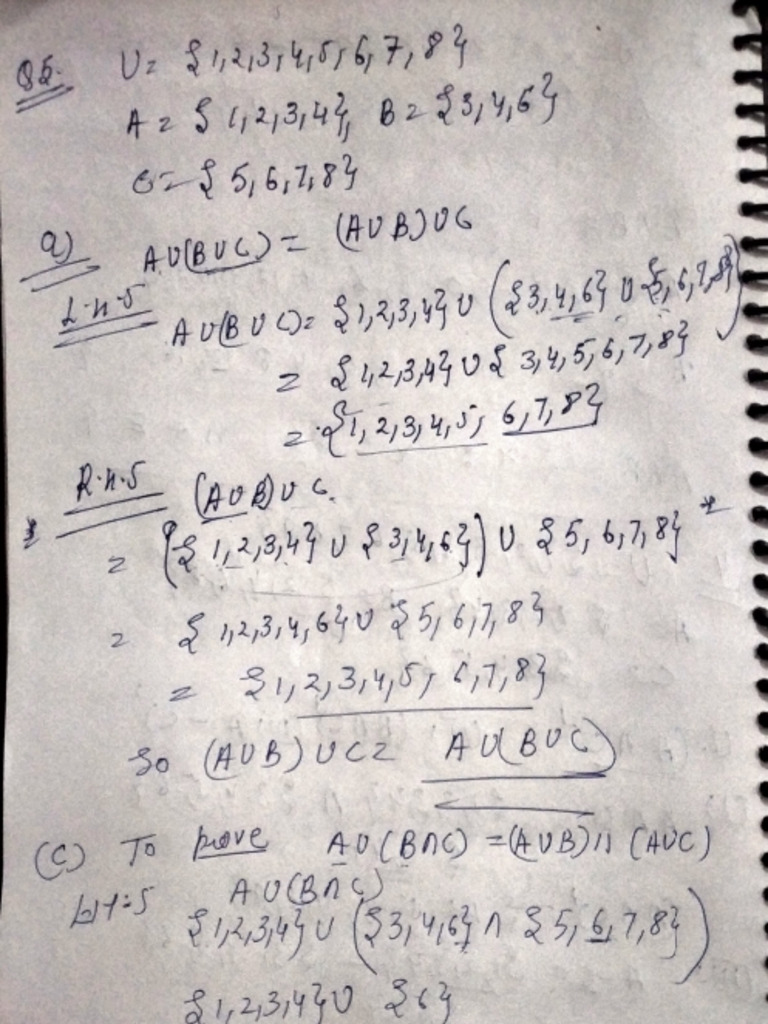 Q5. U = {1,2,3,4,5,6,7,8}
A = {1,2,3,4}, B = {3,4,6}
C = {5,6,7,8}
a) A∪(B∪C) = (A∪B)∪C
L.H.S A∪(B∪C) = {1,2,3,4} ∪ ({3,4,6} ∪ {5,6,7,8})
= {1,2,3,4} ∪ {3,4,5,6,7,8}
= {1,2,3,4,5,6,7,8}
R.H.S (A∪B)∪C.
= ({1,2,3,4} ∪ {3,4,6}) ∪ {5,6,7,8}
= {1,2,3,4,6} ∪ {5,6,7,8}
= {1,2,3,4,5,6,7,8}
So (A∪B)∪C = A∪(B∪C)
(C) To prove A∪(B∩C) = (A∪B)∩(A∪C)
L.H.S A∪(B∩C)
{1,2,3,4} ∪ ({3,4,6} ∩ {5,6,7,8})
{1,2,3,4} ∪ {6}